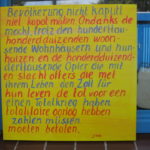 Bevölkerung nicht kaputt
niet kapotmaken. Ondanks de
macht trotz den hunderttau
honderdduizenden woon-
Wohnhäusern und hun
huizen en de honderdduizend
dertausende Opfer die mit
en slachtoffers die met
ihrem Leben den Zoll für
hun leven de tol voor een
einen Totalkrieg haben
totalitaire oorlog hebben
zahlen müssen.
moeten betalen.